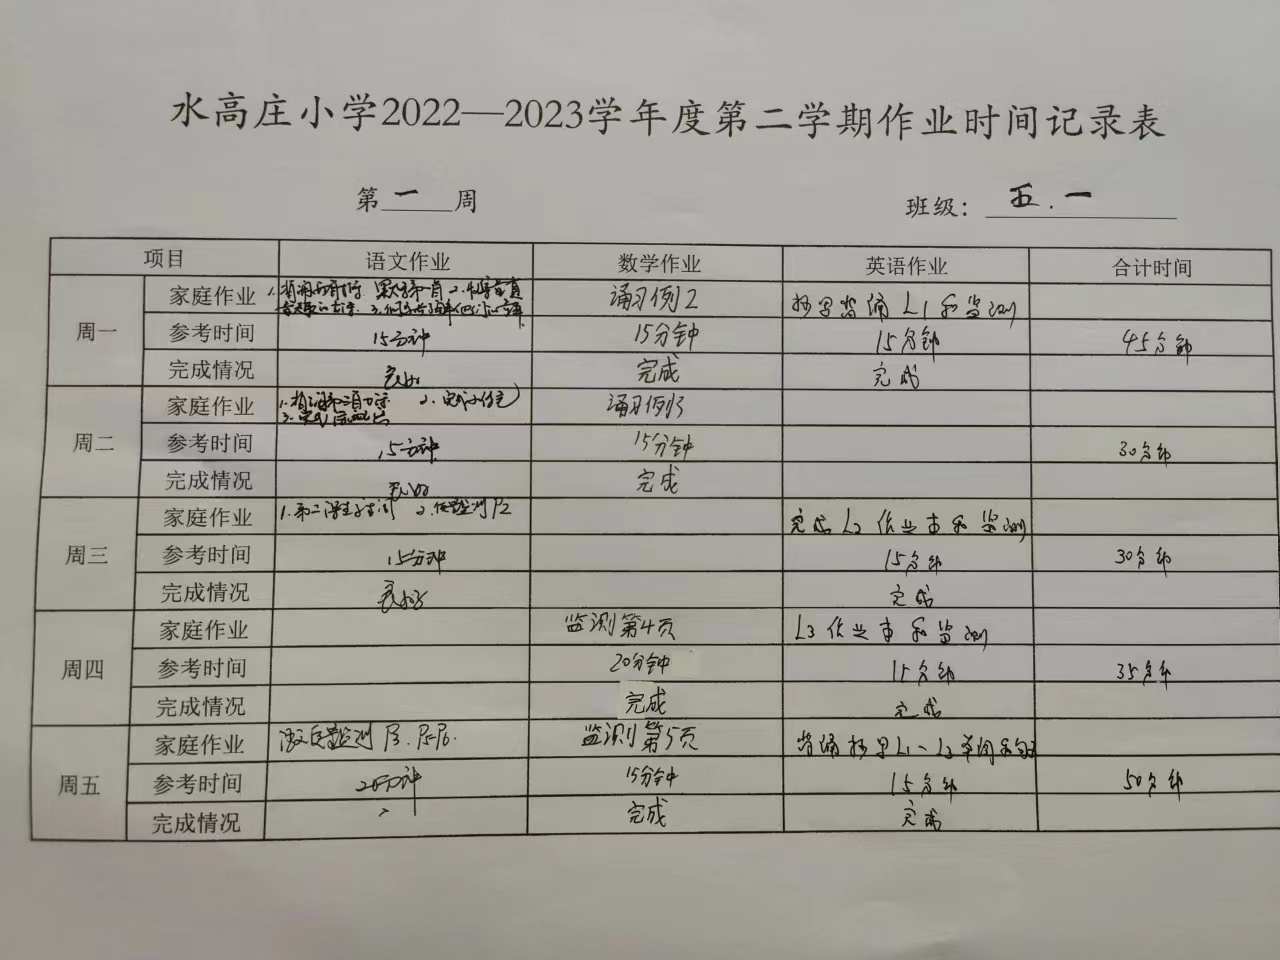 水高庄小学2022—2023学年度第二学期作业时间记录表
第 一 周 班级：五.一
项目 语文作业 数学作业 英语作业 合计时间
周一
家庭作业 诵习例2 抄写背诵L1和监测
参考时间 15分钟 15分钟 15分钟 45分钟
完成情况 良好 完成 完成
周二
家庭作业 诵习例3
参考时间 15分钟 15分钟 30分钟
完成情况 良好 完成
周三
家庭作业 完成L2作业本和监测
参考时间 15分钟 15分钟 30分钟
完成情况 良好 完成
周四
家庭作业 监测第4页 L3作业本和监测
参考时间 20分钟 15分钟 35分钟
完成情况 完成 完成
周五
家庭作业 P3.P5P6. 监测第5页 背诵抄写L1-L3单词和句子
参考时间 20分钟 15分钟 15分钟 50分钟
完成情况 完成 完成